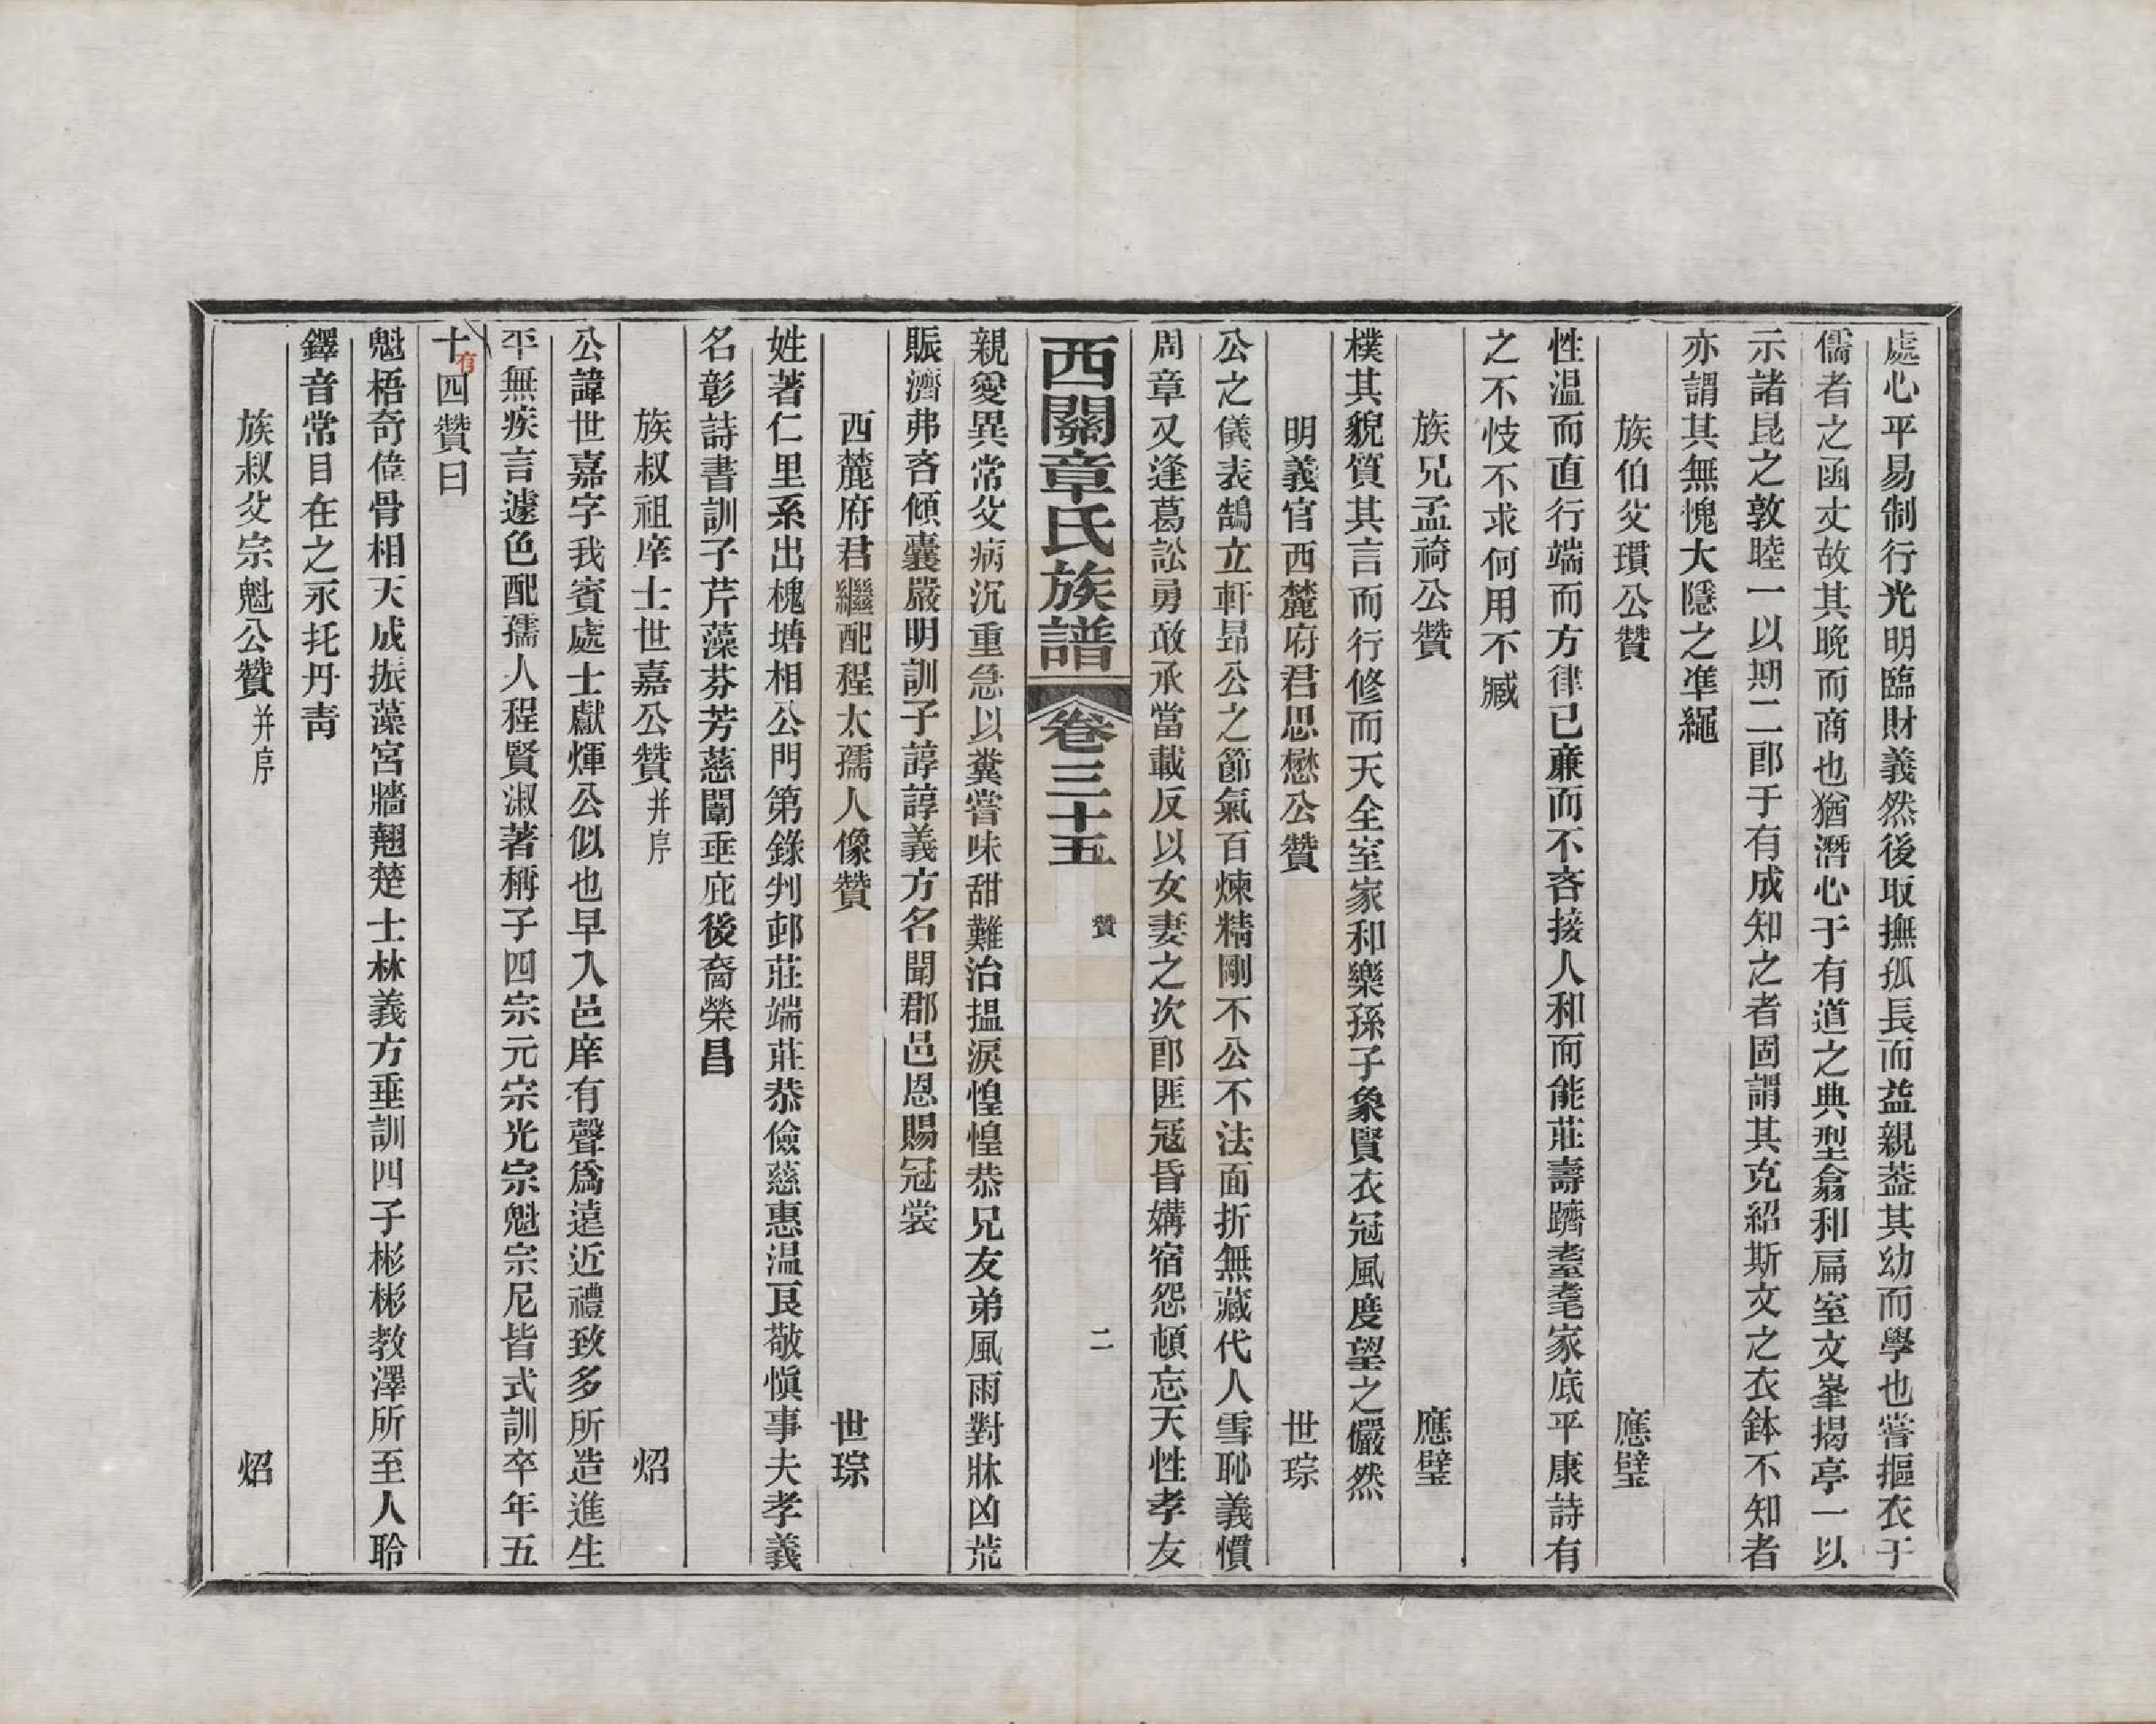 處心平易制行光明臨財義然後取撫孤長而益親葢其幼而學也嘗摳衣于
儒者之函丈故其晚而商也猶潛心于有道之典型翕和扁室文峯揭亭一以
示諸昆之敦睦一以期二郎于有成知之者固謂其克紹斯文之衣鉢不知者
亦謂其無愧大隱之凖繩
族伯父瓆公贊 應璧
性温而直行端而方律已亷而不吝接人和而能莊壽躋耋耄家底平康詩有
之不忮不求何用不臧
族兄孟𥙿公贊 應璧
樸其貌質其言而行修而天全室家和樂孫子象賢衣冠風度望之儼然
明義官西麓府君思懋公贊 世琮
公之儀表鵠立軒昻公之節氣百煉精剛不公不法面折無藏代人雪恥義慣
周章又逢葛訟勇敢承當載反以女妻之次郎匪冦昏媾宿怨頓忘天性孝友
西關章氏族譜 卷三十五 贊 二
親愛異常父病沉重急以糞嘗味甜難治揾淚惶惶恭兄友弟風雨對牀凶荒
賑濟弗吝傾囊嚴明訓子諄諄義方名聞郡邑恩賜冠裳
西麓府君繼配程太孺人像贊 世琮
姓著仁里系出槐塘相公門第錄判邨莊端莊恭儉慈惠温良敬愼事夫孝義
名彰詩書訓子芹藻芬芳慈闈垂庇後裔榮昌
族叔祖庠士世嘉公贊并序 炤
公諱世嘉字我賓處士獻煇公似也早入邑庠有聲爲遠近禮致多所造進生
平無疾言遽色配孺人程賢淑著稱子四宗元宗光宗魁宗尼皆式訓卒年五
十有四贊曰
魁梧奇偉骨相天成振藻宮牆翹楚士林義方垂訓四子彬彬教澤所至人聆
鐸音常目在之永托丹靑
族叔父宗魁公贊并序 炤